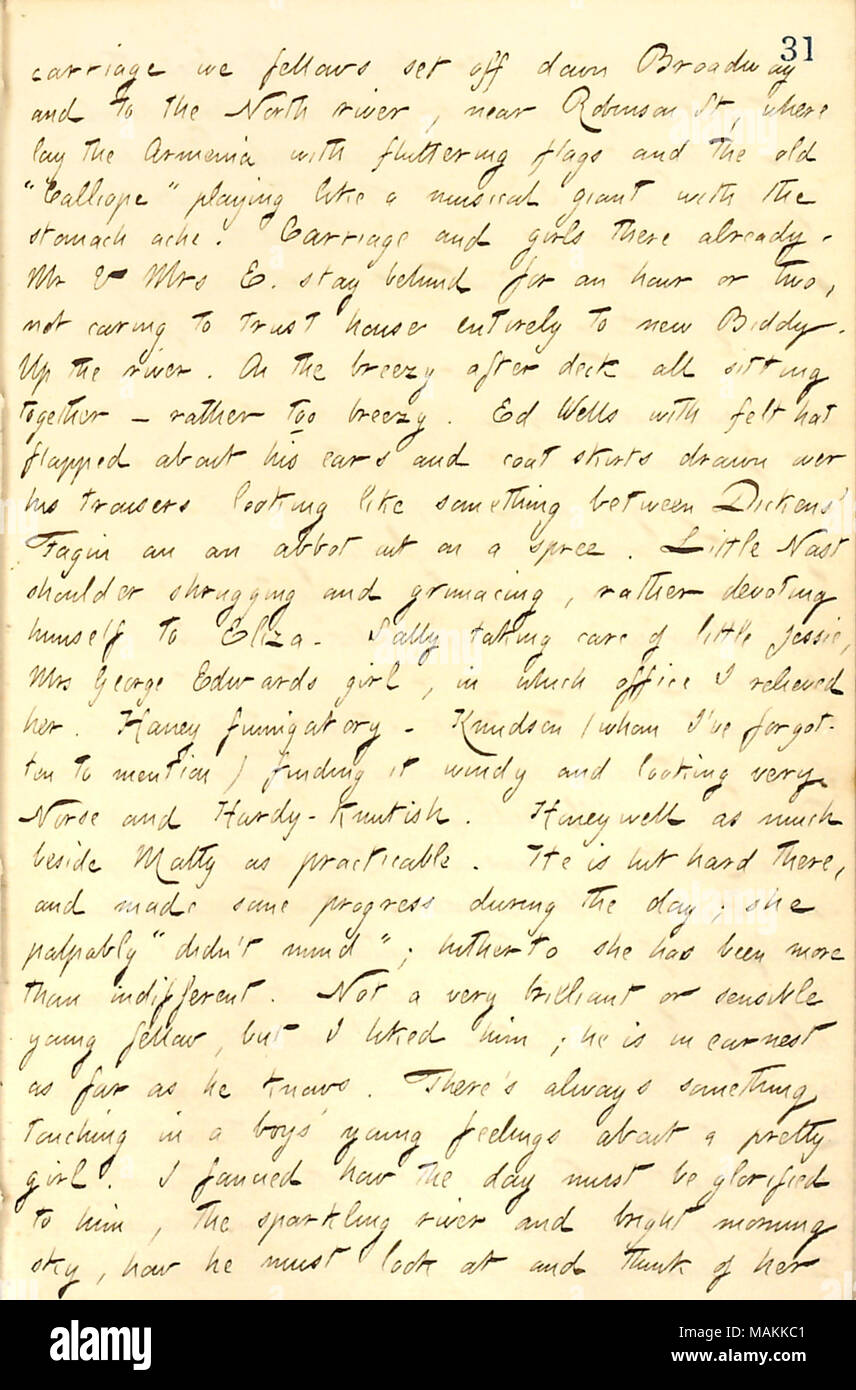 31
carriage we fellows set off down Broadway
and to the North river, near Robinson St, where
lay the Armenia with fluttering flags and the old
"Calliope" playing like a musical giant with the
stomach ache. Carriage and girls there already.
Mr & Mrs E. stay behind for an hour or two,
not caring to trust house entirely to new Biddy.
Up the river. On the breezy after deck all sitting
together — rather too breezy. Ed Wells with felt hat
flapped about his ears and coat skirts drawn over
his trousers looking like something between Dickens'
Fagin an an abbot out on a spree. Little Nast
shoulder shrugging and grimacing, rather devoting
himself to Eliza. Sally taking care of little Jessie,
Mrs George Edwards girl, in which office I relieved
her. Haney fumigatory. Knudsen (whom I've forgot-
ten to mention) finding it windy and looking very
Norse and Hardy-Knutish. Honeywell as much
beside Matty as practicable. He is hit hard there,
and made some progress during the day; she
palpably "didn't mind"; hitherto she has been more
than indifferent. Not a very brilliant or sensible
young fellow, but I liked him; he is in earnest
as far as he knows. There's always something
touching in a boys' young feelings about a pretty
girl. I fancied how the day must be glorified
to him, the sparkling river and bright morning
sky, how he must look at and think of her
alamy
Image ID: MAKKC1
www.alamy.com